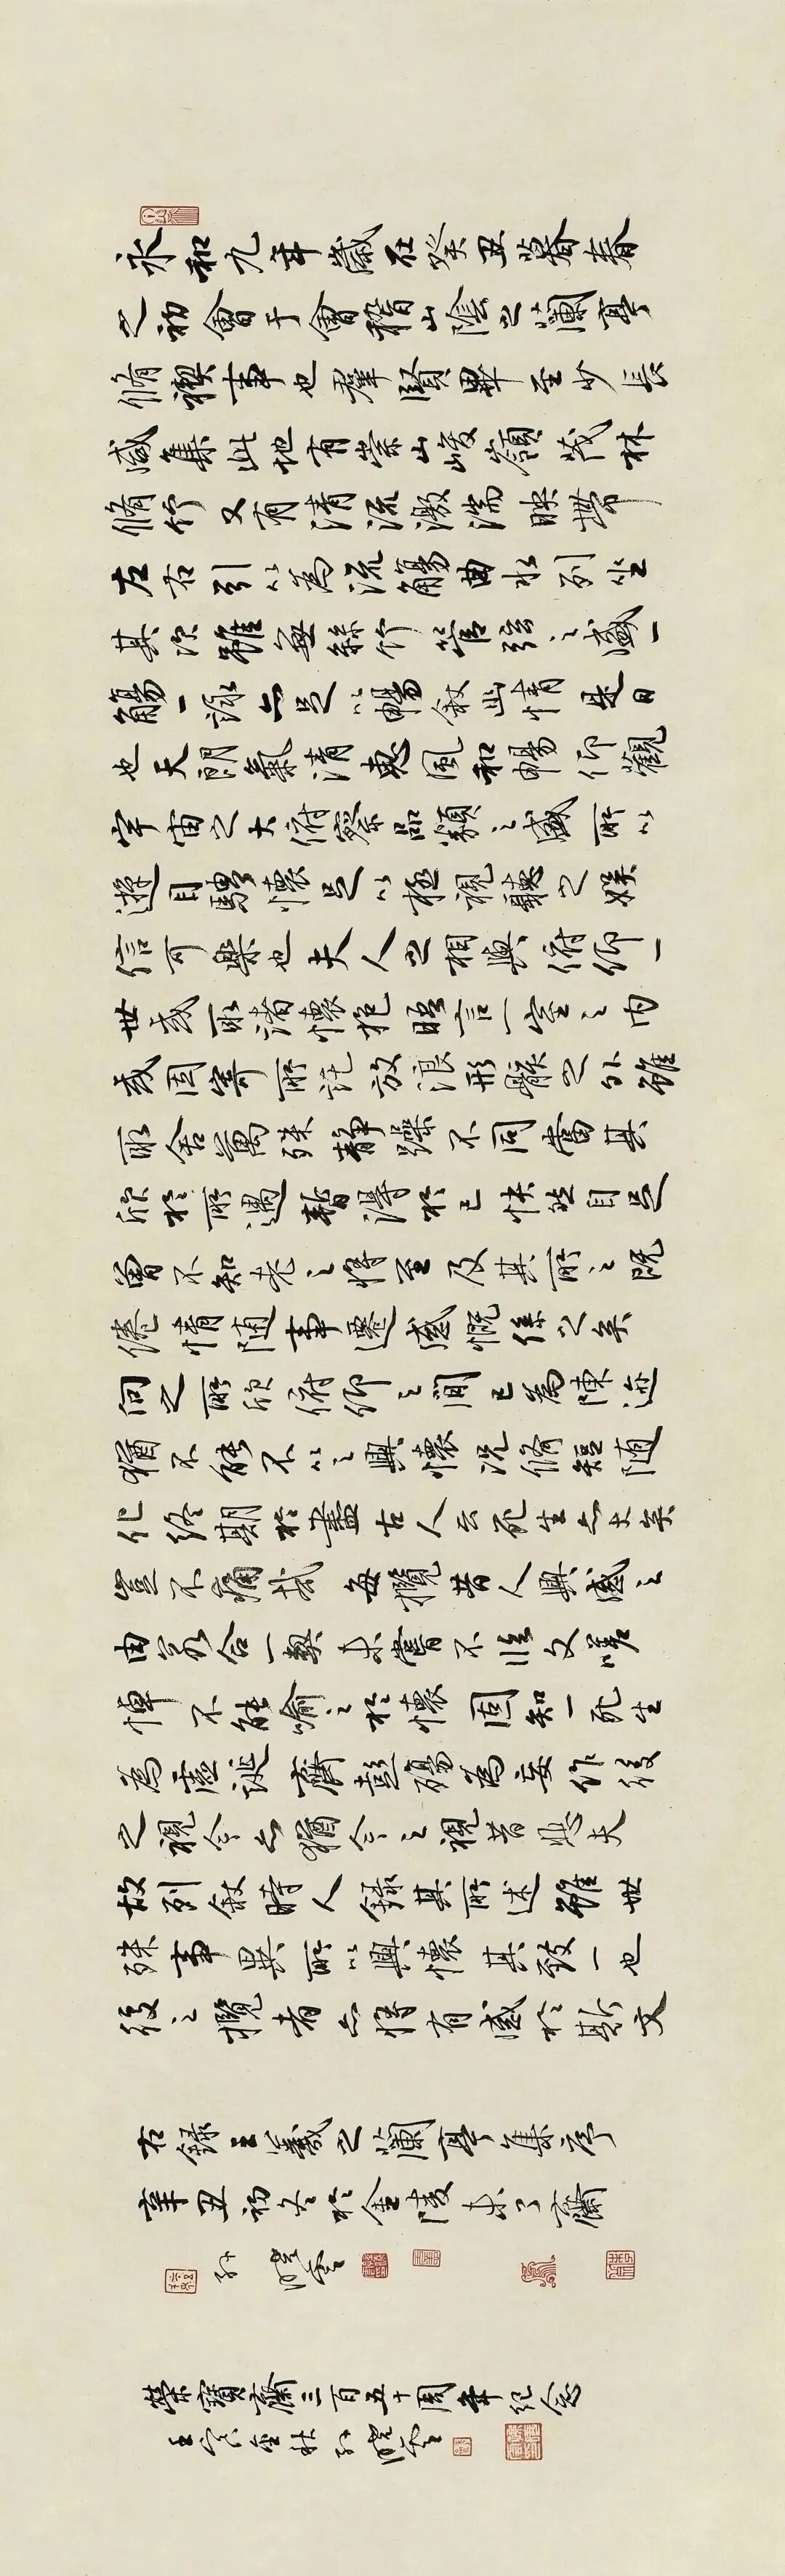 永和九年歲在癸丑暮春
之初會于會稽山陰之蘭亭
脩禊事也羣賢畢至少長
咸集此地有崇山峻嶺茂林
脩竹又有清流激湍映帶
左右引以為流觴曲水列坐
其次雖無絲竹管弦之盛一
觴一詠亦足以暢敘幽情是日
也天朗氣清惠風和暢仰觀
宇宙之大俯察品類之盛所以
遊目騁懷足以極視聽之娛
信可樂也夫人之相與俯仰一
世或取諸懷抱晤言一室之內
或因寄所託放浪形骸之外雖
取舍萬殊靜躁不同當其
欣於所遇暫得於己快然自足
曾不知老之將至及其所之既
倦情隨事遷感慨係之矣
向之所欣俯仰之間已為陳迹
猶不能不以之興懷況脩短隨
化終期於盡古人云死生亦大矣
豈不痛哉每攬昔人興感之
由若合一契未嘗不臨文嗟
悼不能喻之於懷固知一死生
為虛誕齊彭殤為妄作後
之視今亦猶今之視昔悲夫
故列敘時人錄其所述雖世
殊事異所以興懷其致一也
後之攬者亦將有感於斯文
右錄王羲之蘭亭集序
辛丑初冬於金陵未了齋
孫曉雲
榮寶齋三百五十周年紀念
壬寅金秋孫曉雲